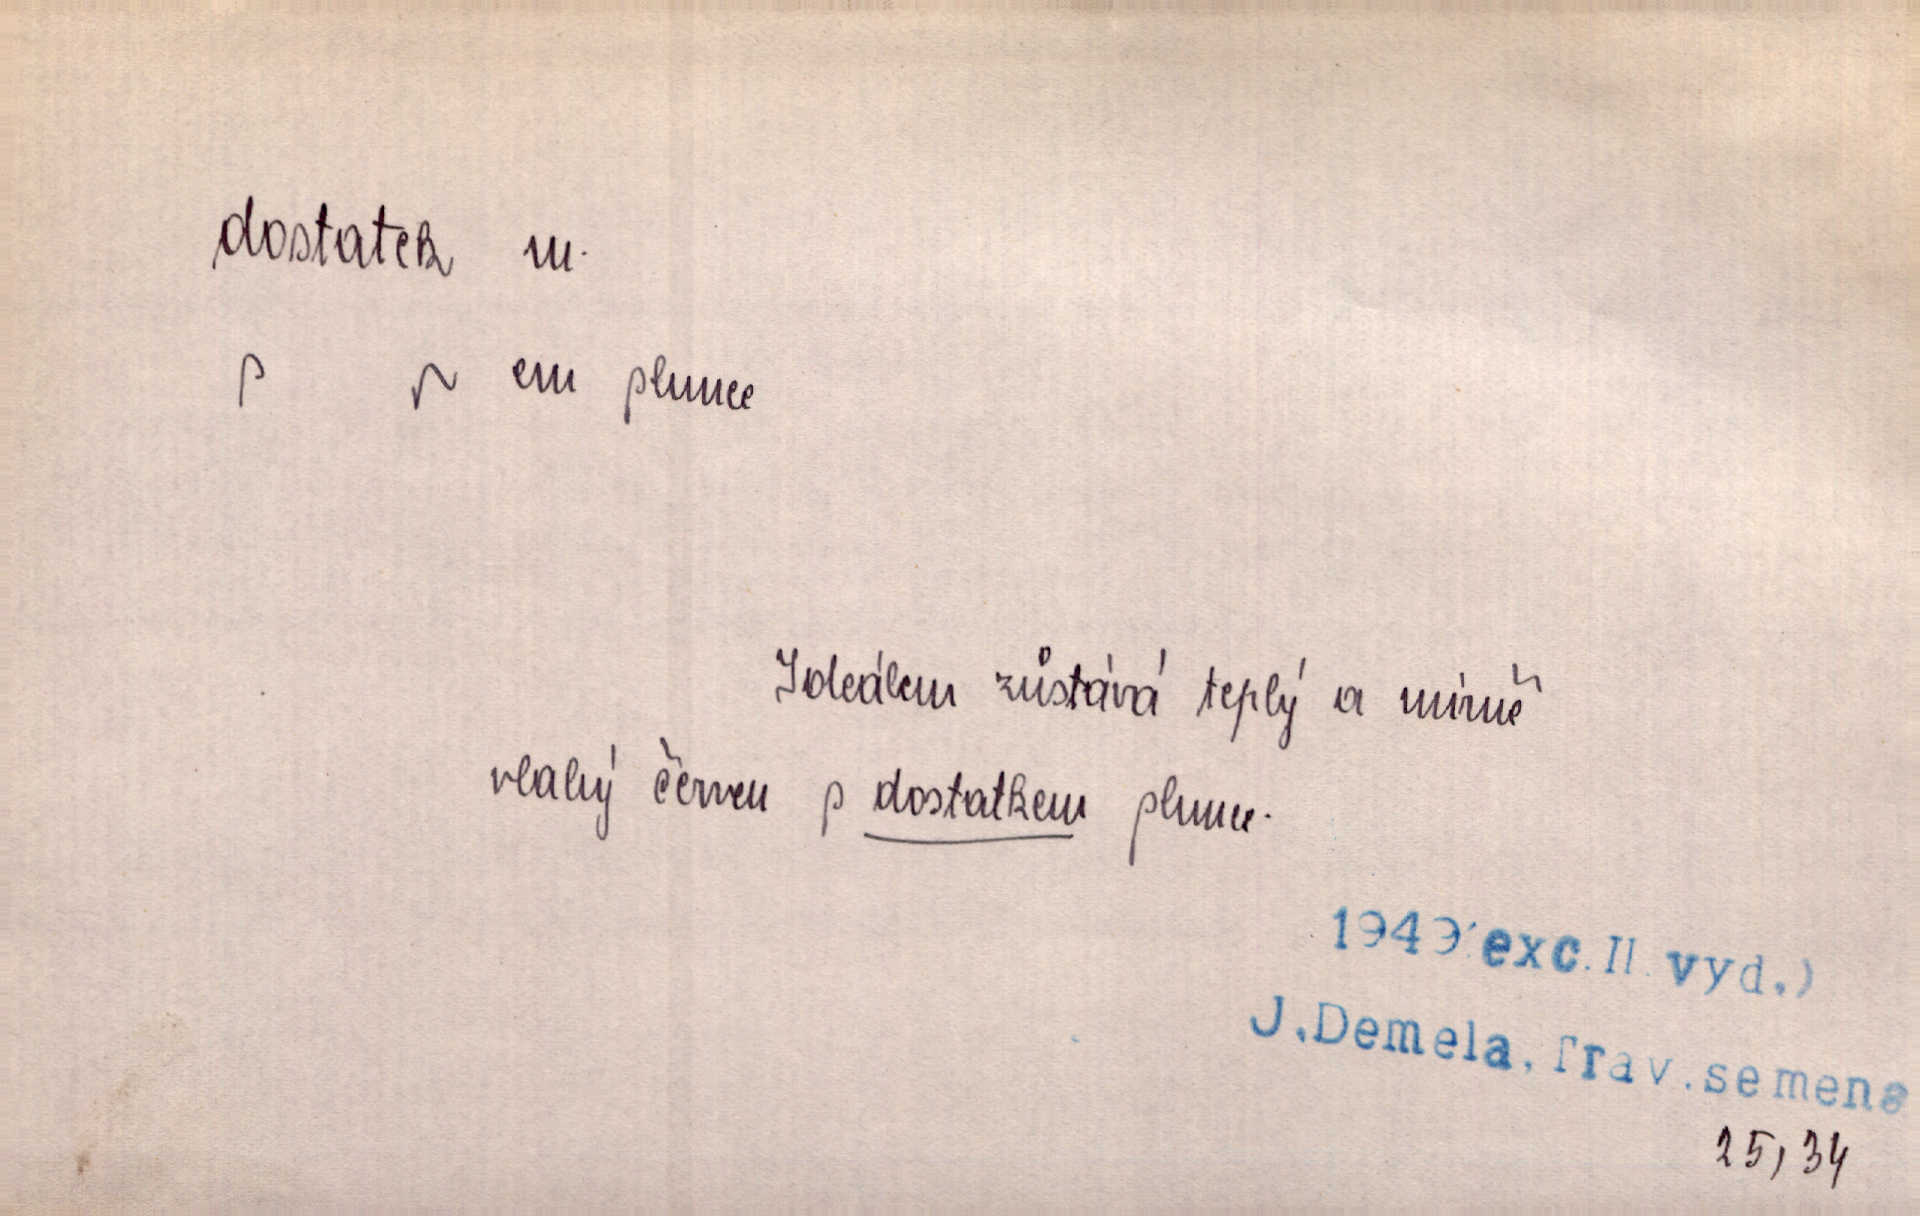 dostatek m.
s ~ em slunce
Ideálem zůstává teplý a mírně
vlahý červen s dostatkem slunce.
1949 exc. II. vyd.)
J. Demela, Trav. semena
25, 34